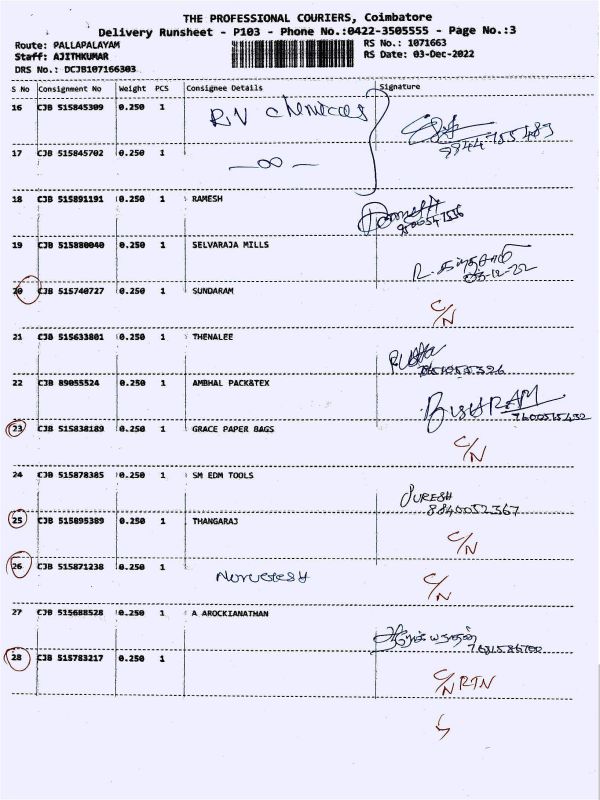 THE PROFESSIONAL COURIERS, Coimbatore
Delivery Runsheet - P103 - Phone No.:0422-3505555 - Page No.:3
Route: PALLAPALAYAM
RS No.: 1071663
Staff: AJITHKUMAR
RS Date: 03-Dec-2022
DRS No.: DCJB107166303
S No Consignment No Weight PCS Consignee Details Signature
16 CJB 515845309 0.250 1 RN chemicals
9844755489
17 CJB 515845702 0.250 1 —oo—
18 CJB 515891191 0.250 1 RAMESH
19 CJB 515880040 0.250 1 SELVARAJA MILLS
03-12-22
20 CJB 515740727 0.250 1 SUNDARAM C/N
21 CJB 515633801 0.250 1 THENALEE
22 CJB 89055524 0.250 1 AMBHAL PACK&TEX
23 CJB 515838189 0.250 1 GRACE PAPER BAGS C/N
24 CJB 515878385 0.250 1 SM EDM TOOLS
SURESH
8840052367
25 CJB 515895389 0.250 1 THANGARAJ C/N
26 CJB 515871238 0.250 1 C/N
27 CJB 515688528 0.250 1 A AROCKIANATHAN
28 CJB 515783217 0.250 1 C/N RTN